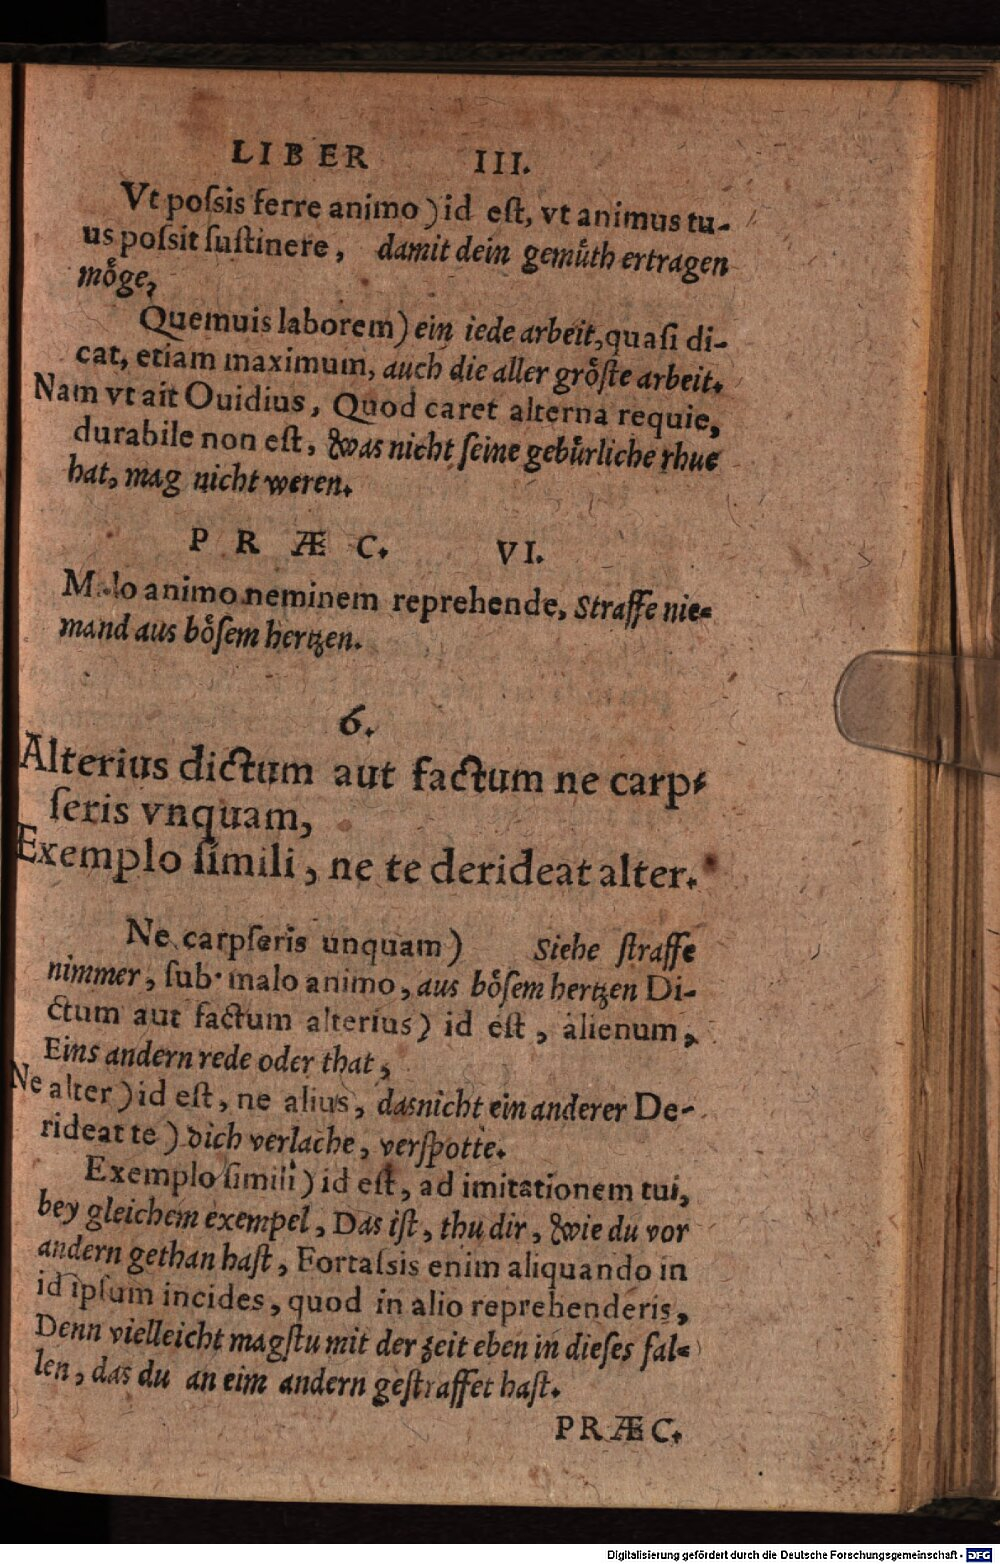 LIBER III.
Vt poſsis ferre animo) id eſt, vt animus tu-
us poſsit ſuſtinere, damit dein gemuͤth ertragen
moͤge,
Quemuis laborem) ein iede arbeit, quaſi di-
cat, etiam maximum, auch die aller groͤſte arbeit.
Nam vt ait Ouidius, Quod caret alterna requie,
durabile non eſt, was nicht ſeine gebuͤrliche rhue
hat, mag nicht weren.
PRÆC. VI.
Malo animo neminem reprehende, Straffe nie-
mand aus boͤſem hertzen.
6.
Alterius dictum aut factum ne carp-
ſeris vnquam,
Exemplo ſimili, ne te derideat alter.
Ne carpſeris unquam) Siehe ſtraffe
nimmer, ſub malo animo, aus boͤſem hertzen Di-
ctum aut factum alterius) id eſt, alienum,
Eins andern rede oder that,
Ne alter) id eſt, ne alius, das nicht ein anderer De-
rideat te) dich verlache, verſpotte.
Exemplo ſimili) id eſt, ad imitationem tui,
bey gleichem exempel, Das iſt, thu dir, wie du vor
andern gethan haſt, Fortaſsis enim aliquando in
id ipſum incides, quod in alio reprehenderis,
Denn vielleicht magſtu mit der zeit eben in dieſes fal-
len, das du an eim andern geſtraffet haſt.
PRÆC.
Digitalisierung gefördert durch die Deutsche Forschungsgemeinschaft - DFG